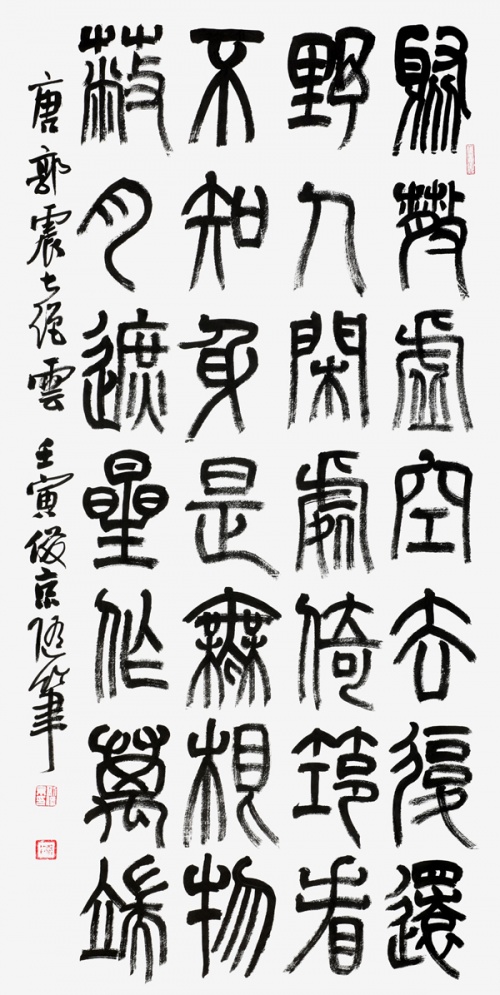 聚散虛空去復還
野人閑處倚筇看
不知身是無根物
蔽月遮星作萬端
唐郭震七絕雲 壬寅俊京隨筆